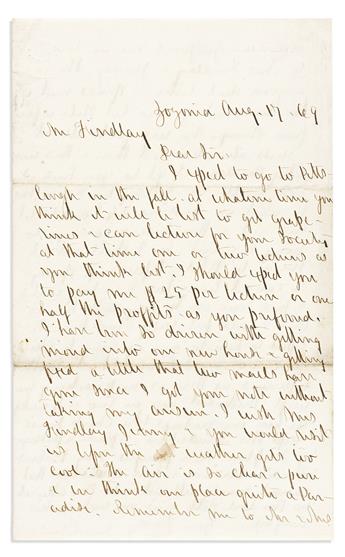 Zozonia Aug. 17. 69
Mr Findlay
Dear Sir.
I expect to go to Pitts-
burgh in the fall. at whatever time you
think it will be best to get grape
vines & can lecture for your Society
at that time one or two lectures as
you think best. I should expect you
to pay me $25 per lecture or one
half the proffits as you preferred.
I have been so driven with getting
moved into our new house & getting
fixed a little that two mails have
gone since I got your note without
taking my answer. I wish Mrs
Findlay & you would visit
us before the weather gets too
cool. The air is so clear & pure
& we think our place quite a Par-
adise. Remember me to Mr & Mrs